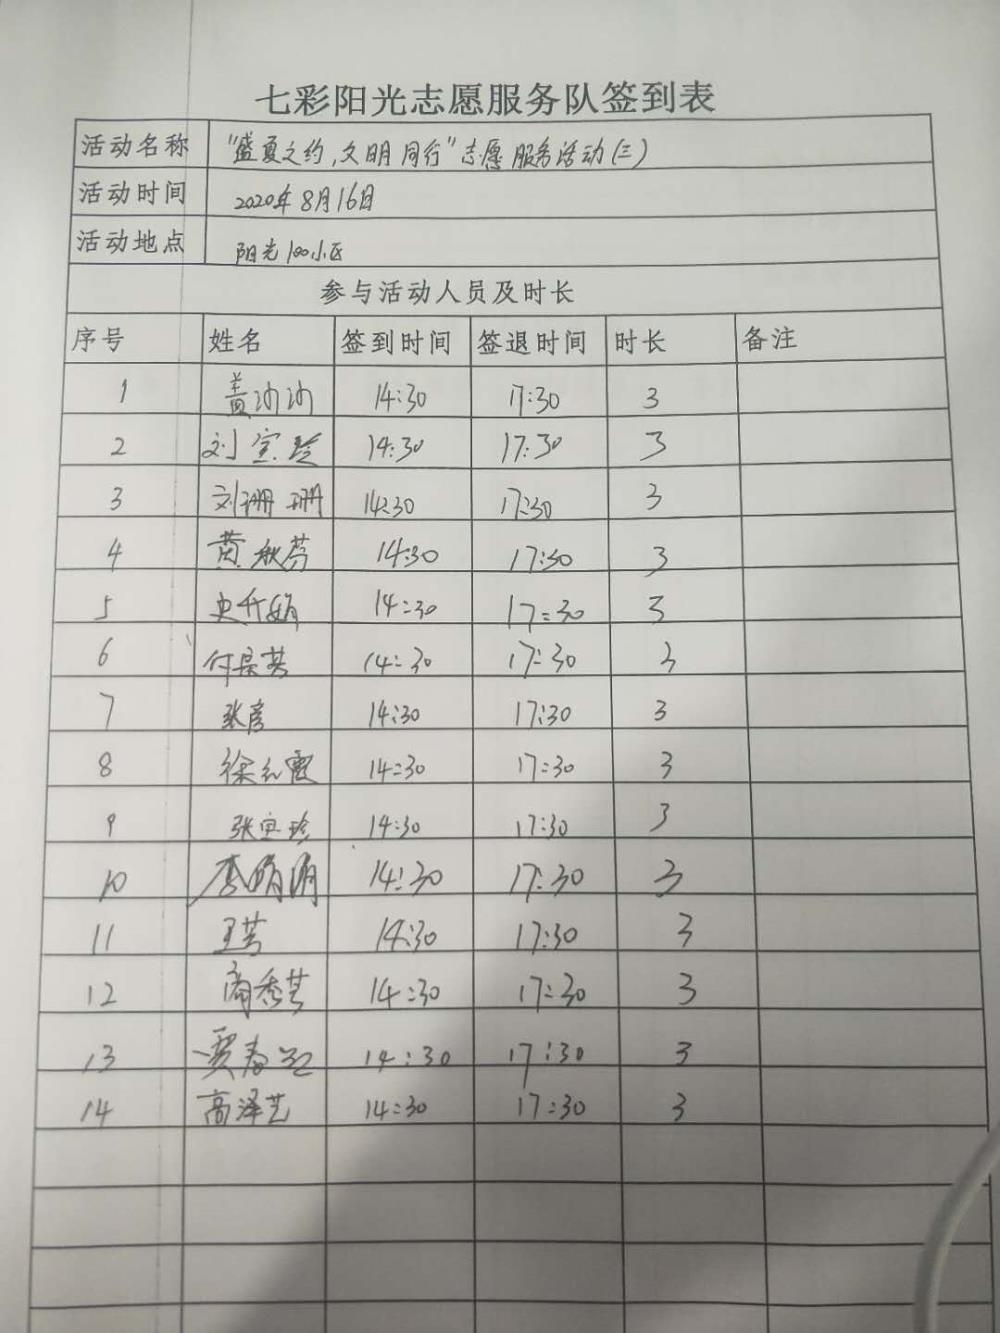 七彩阳光志愿服务队签到表
活动名称 "盛夏之约,文明同行"志愿服务活动(三)
活动时间 2020年8月16日
活动地点 阳光100小区
参与活动人员及时长
序号 姓名 签到时间 签退时间 时长 备注
1 盖沙沙 14:30 17:30 3
2 刘宝玲 14:30 17:30 3
3 刘珊珊 14:30 17:30 3
4 黄秋芬 14:30 17:30 3
5 史升娟 14:30 17:30 3
6 14:30 17:30 3
7 张彦 14:30 17:30 3
8 徐红霞 14:30 17:30 3
9 张宝珍 14:30 17:30 3
10 李娟娟 14:30 17:30 3
11 王芳 14:30 17:30 3
12 14:30 17:30 3
13 贾春红 14:30 17:30 3
14 高泽艺 14:30 17:30 3